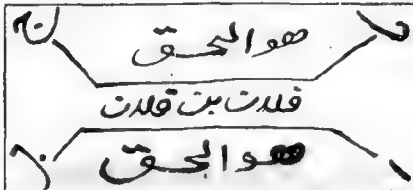 هو الحق
فلان بن فلان
هو الحق